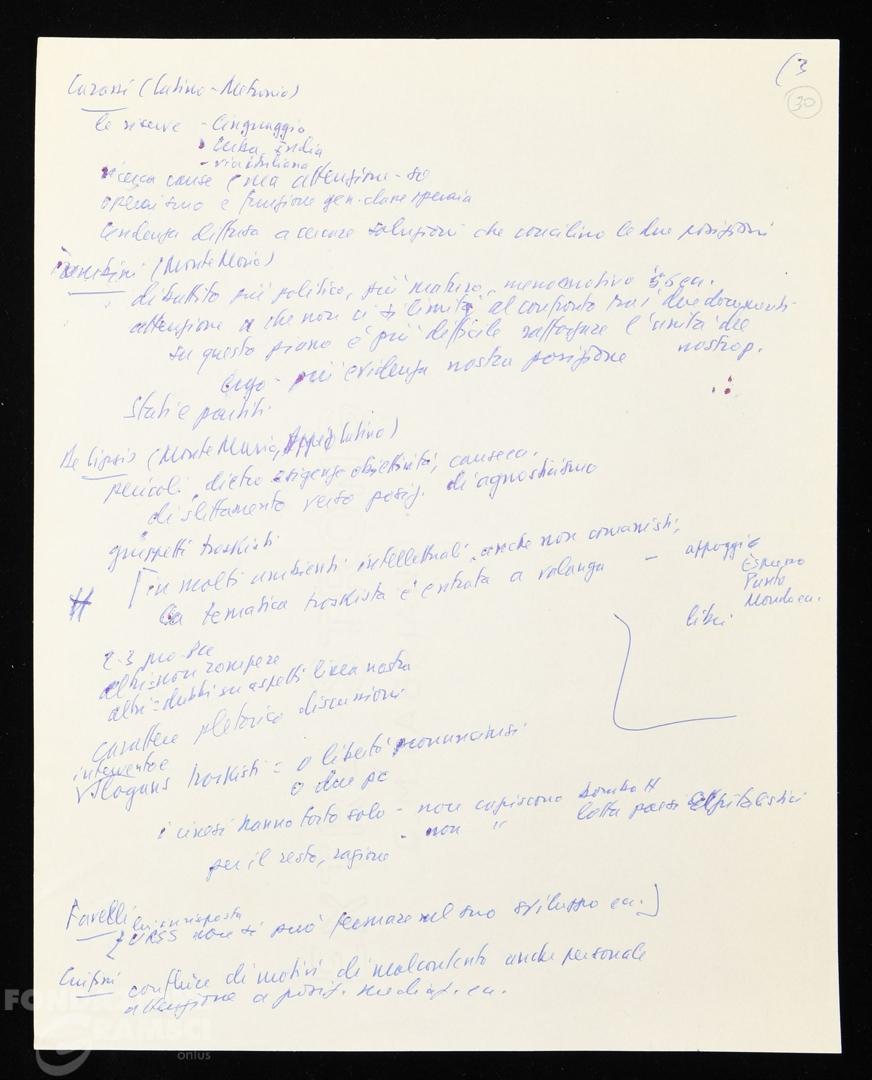 (3
30
(Latino-Metronio)
le riserve - linguaggio
- Cuba, India
- via italiana
ricerca cause (ma attenzione-se
operaismo e funzione gen. classe operaia
tendenza diffusa a cercare soluzioni che concilino le due posizioni
(Monte Mario)
dibattito più politico, più maturo, meno emotivo
attenzione a che non ci si limiti al confronto tra i due documenti
su questo piano è più difficile rafforzare l'unità del
nostro p.
ergo - più evidenza nostra posizione
Stati e partiti
(Monte Mario, Appio Latino)
pericoli, dietro esigenza obiettività, cause ecc.
di slittamento verso posiz. di agnosticismo
gruppetti troskisti
in molti ambienti intellettuali, anche non comunisti,
la tematica troskista è entrata a valanga - appoggio
Espresso
Punto
Mondo ecc.
libri
2-3 pro-Pcc
altri = non rompere
altri = dubbi su aspetti linea nostra
carattere pletorico discussioni
intervento e
slogans troskisti = o libertà pronunciarsi
o due pc
i cinesi hanno torto solo - non capiscono bomba H
- non " lotta paesi capitalistici
per il resto, ragione
Favelli
lui in risposta
URSS non si può fermare nel suo sviluppo ecc.]
confluire di motivi di malcontento anche personale
attenzione a posiz. mediaz. ecc.
FONDAZIONE
GRAMSCI
onlus